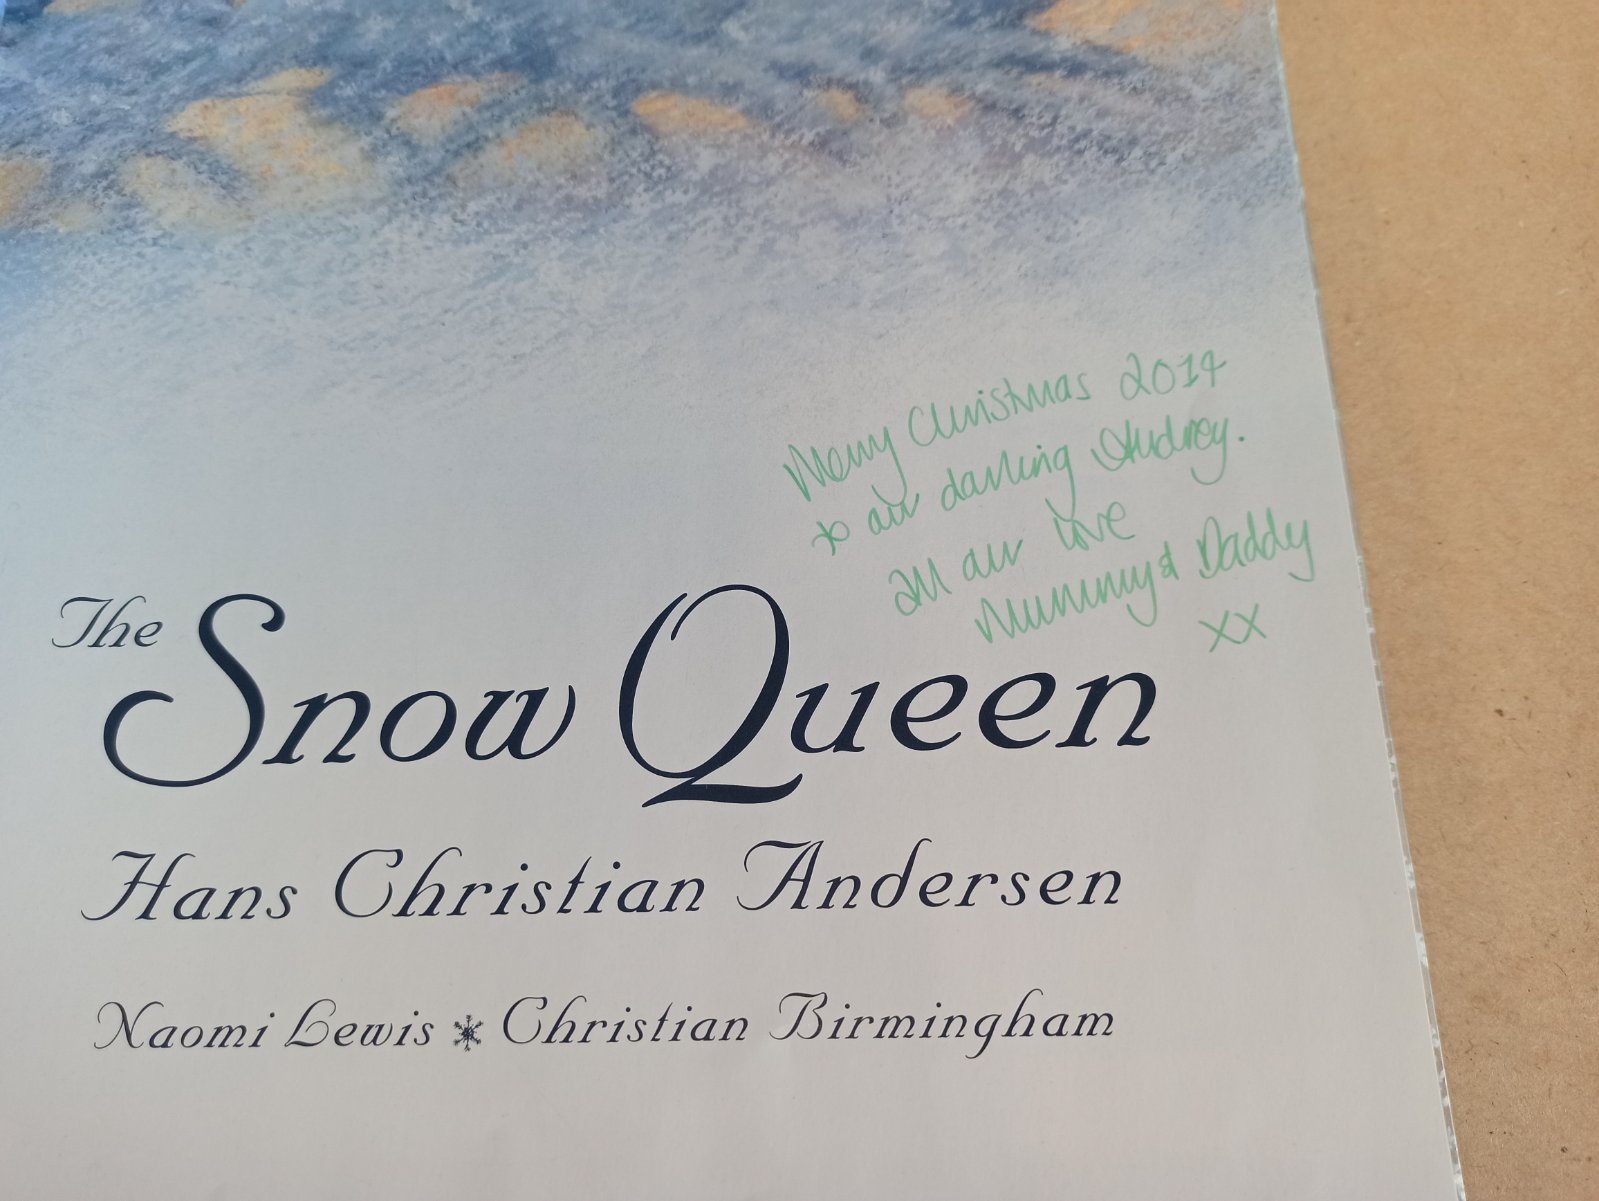 Merry Christmas 2014
to our darling Audrey.
All our love
Mummy & Daddy
xx
The Snow Queen
Hans Christian Andersen
Naomi Lewis * Christian Birmingham